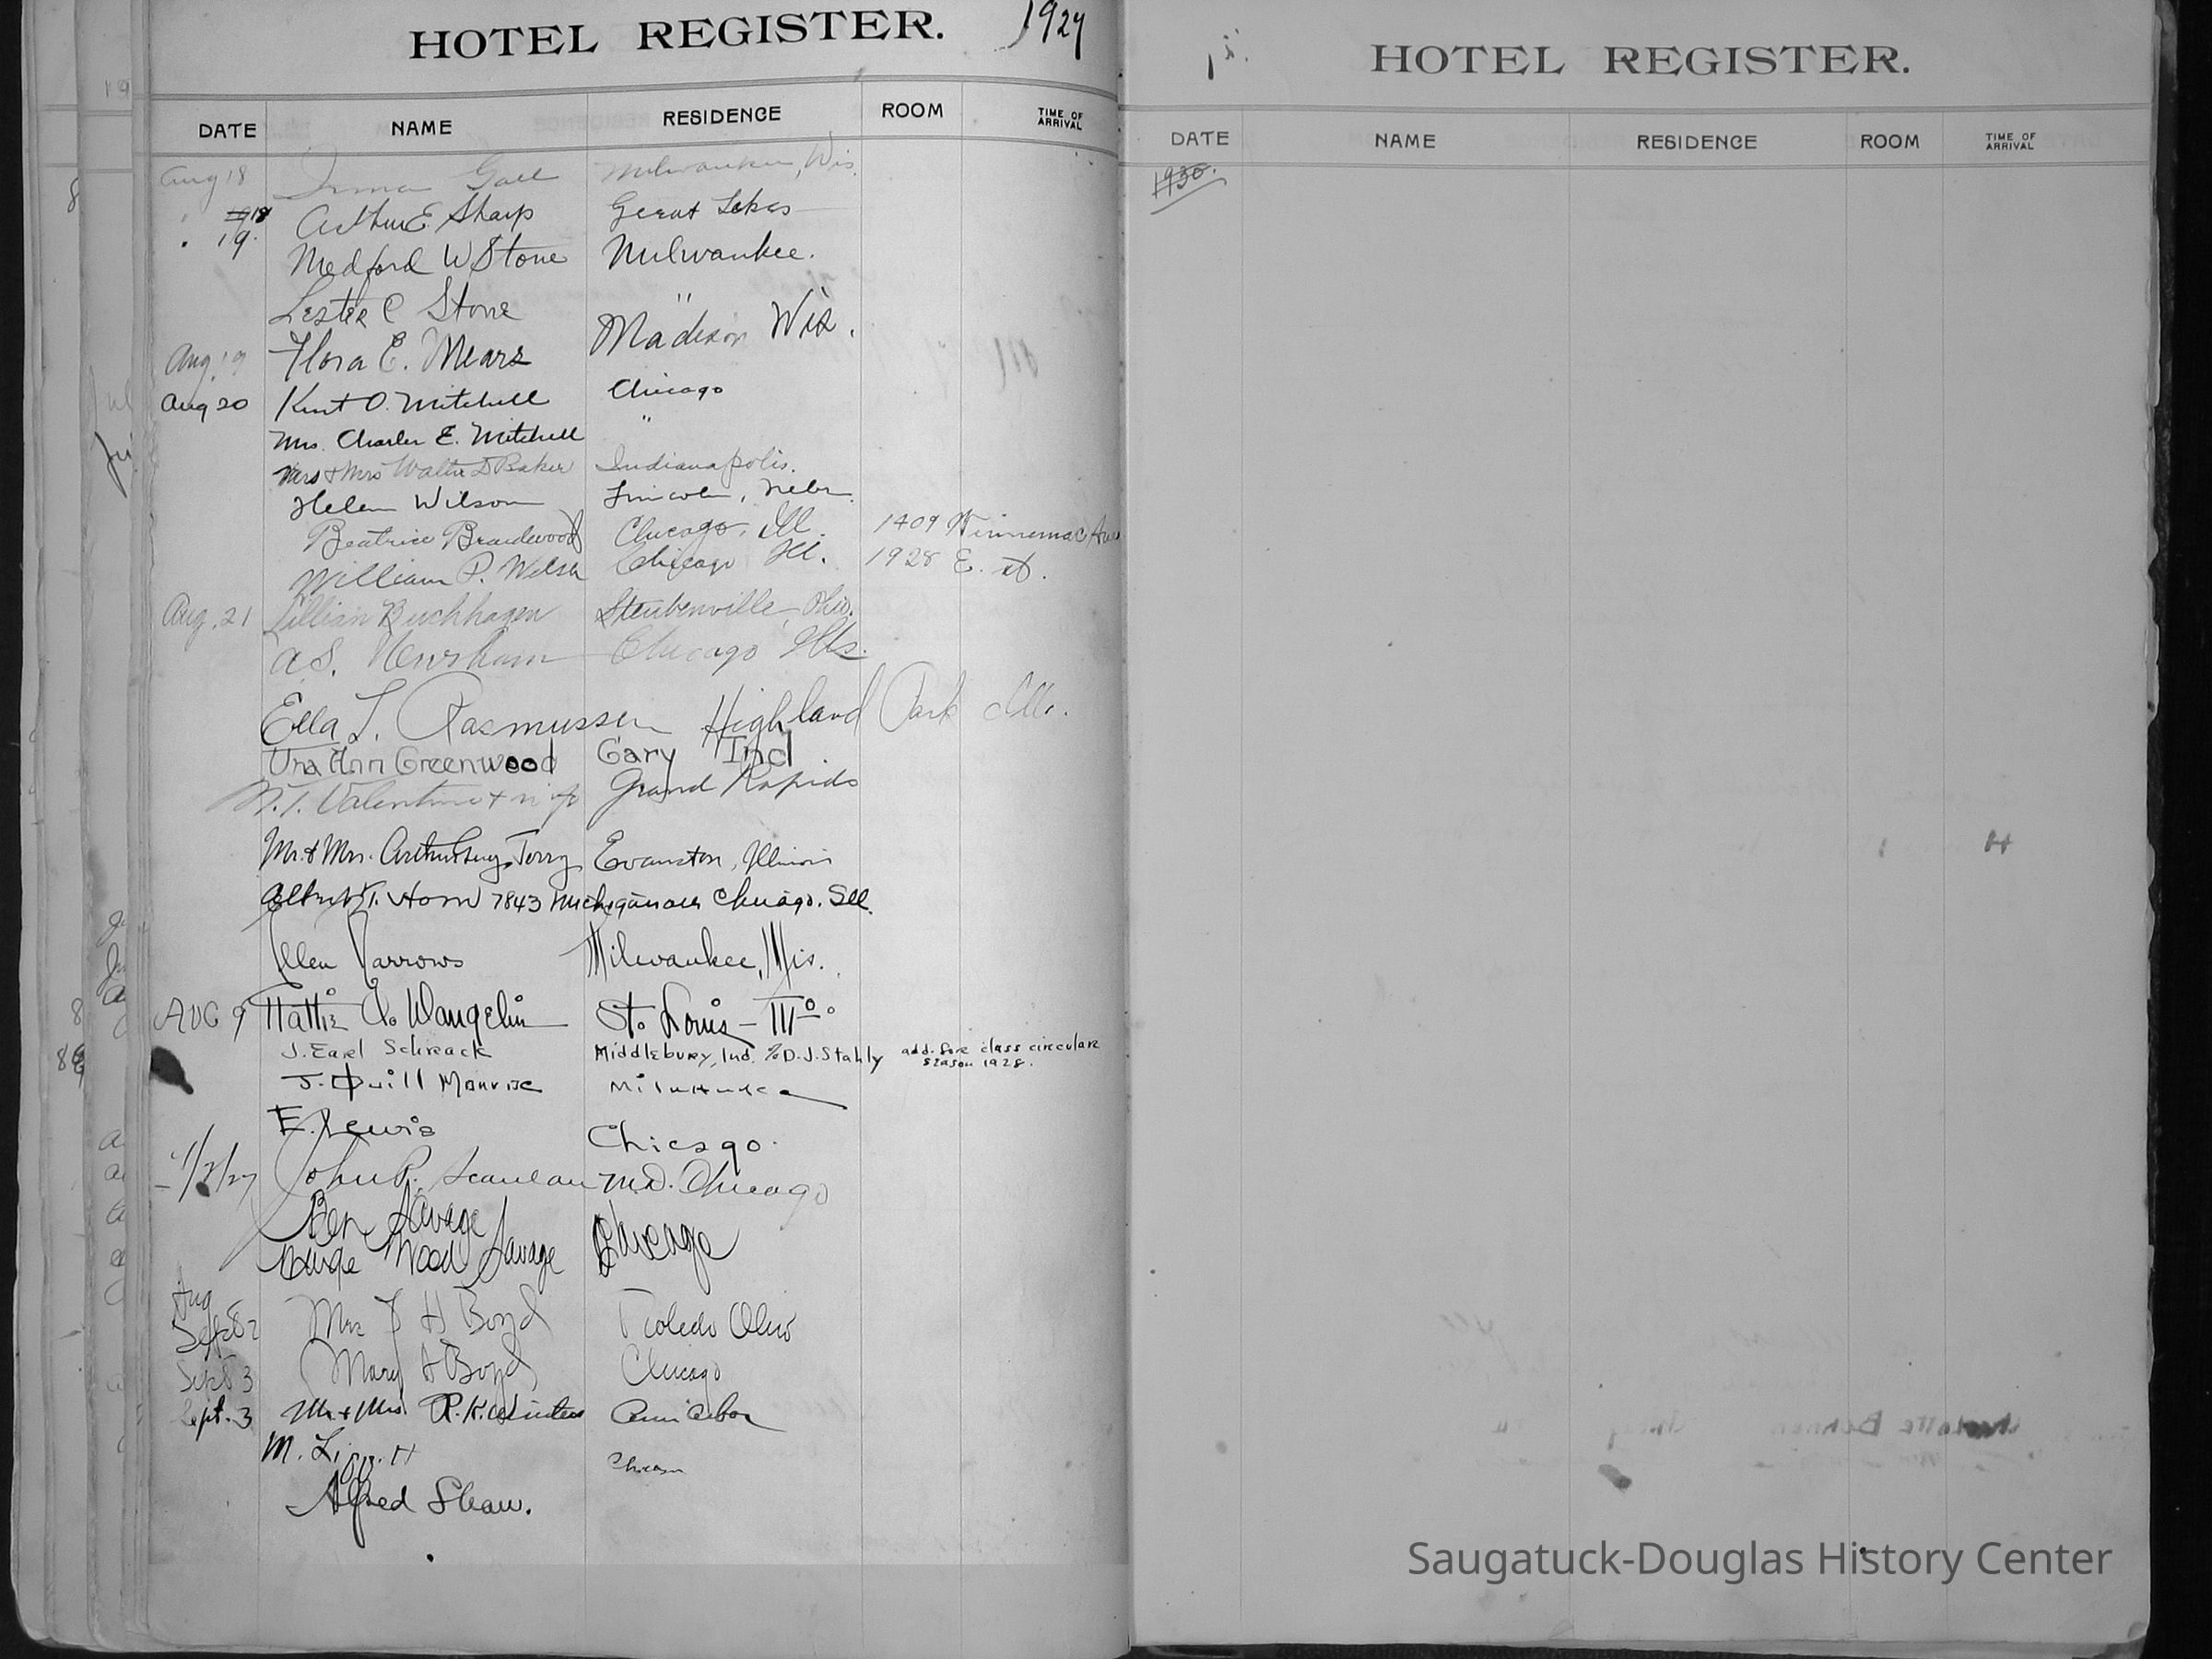 HOTEL REGISTER. 1927
DATE NAME RESIDENCE ROOM TIME OF ARRIVAL
Aug 18 Irma Gall Milwaukee, Wis.
" 18 Arthur E. Sharp Great Lakes
" 19. Medford W Stone Milwaukee.
Lester C Stone "
Aug. 19 Flora E. Mears Madison Wis.
Aug 20 Kurt O. Mitchell Chicago
Mrs. Charles E. Mitchell "
Mrs & Mrs Walter D Baker Indianapolis.
Helen Wilson Lincoln, Nebr.
Beatrice Braidwood Chicago, Ill. 1409 Winnemac Ave
William P. Welsh Chicago Ill. 1928 E. st.
Aug. 21 Lillian Buchhagen Steubenville, Ohio.
A.S. Newsham Chicago Ills.
Ella L. Rasmussen Highland Park Ill.
Una Ann Greenwood Gary Ind
W.T. Valentine + wife Grand Rapids
Mr. & Mrs. Arthur Guy Terry Evanston, Illinois
Albert T. Horn 7843 Michigan ave Chicago. Ill.
Ellen Barrows Milwaukee, Wis.
AUG 9 Hattie Wangelin St. Louis - Mo.
J. Earl Schrack Middlebury, Ind. % D.J. Stahly add. for class circular
season 1928.
J. Quill Monroe Milwaukee
E. Lewis Chicago.
John P. Scanlan M.D. Chicago
Ben Savage
Marge Wood Savage Chicago
Aug
Sept 2 Mrs F H Boyd Toledo Ohio
Sept 3 Mary Boyd Chicago
Sept. 3 Mr + Mrs R.K. Winters Ann Arbor
M. Chicago
Alfred Shaw.
HOTEL REGISTER.
DATE NAME RESIDENCE ROOM TIME OF ARRIVAL
1930.
Saugatuck-Douglas History Center